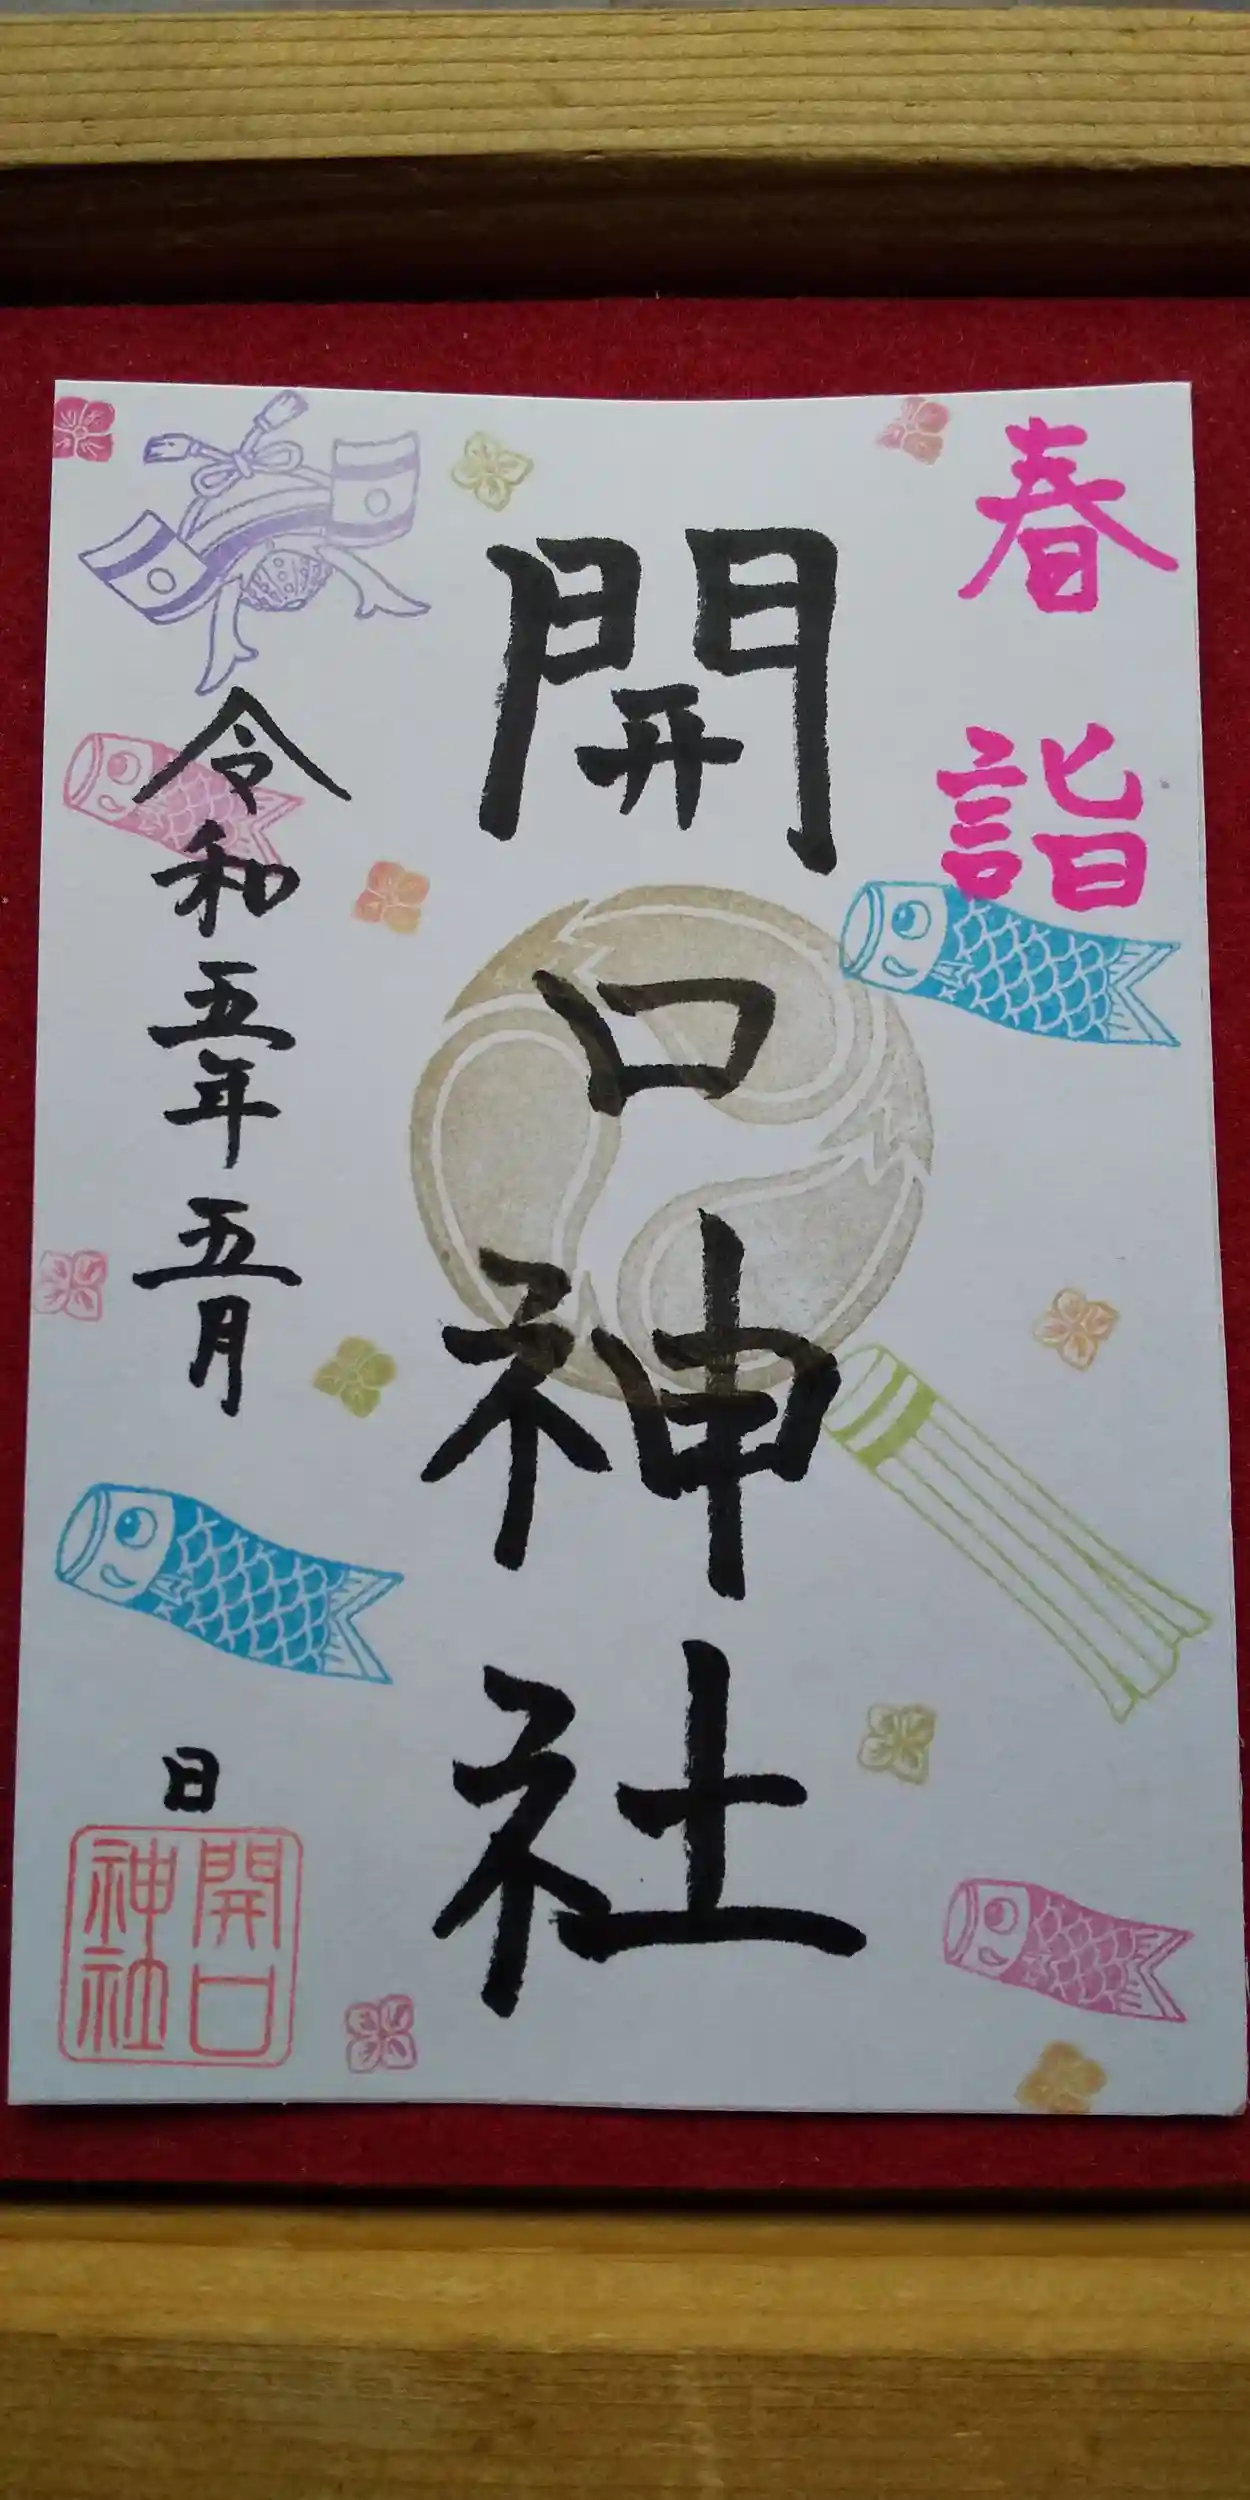 春詣
開口神社
令和五年五月 日
開口
神社